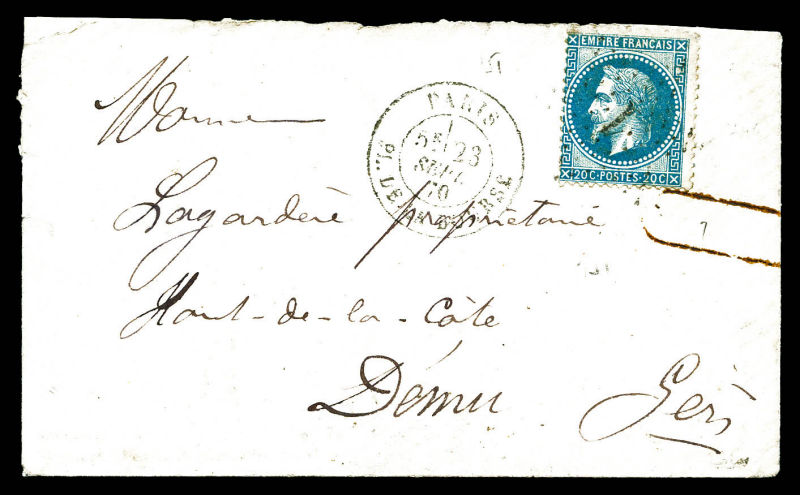 EMPIRE FRANÇAIS
20C·POSTES·20C
PARIS
5E 23
SEPT.
70
PL. DE LA BOURSE
1
Monsieur
Lagardère propriétaire
Haut-de-la-Côte
Dému
Gers